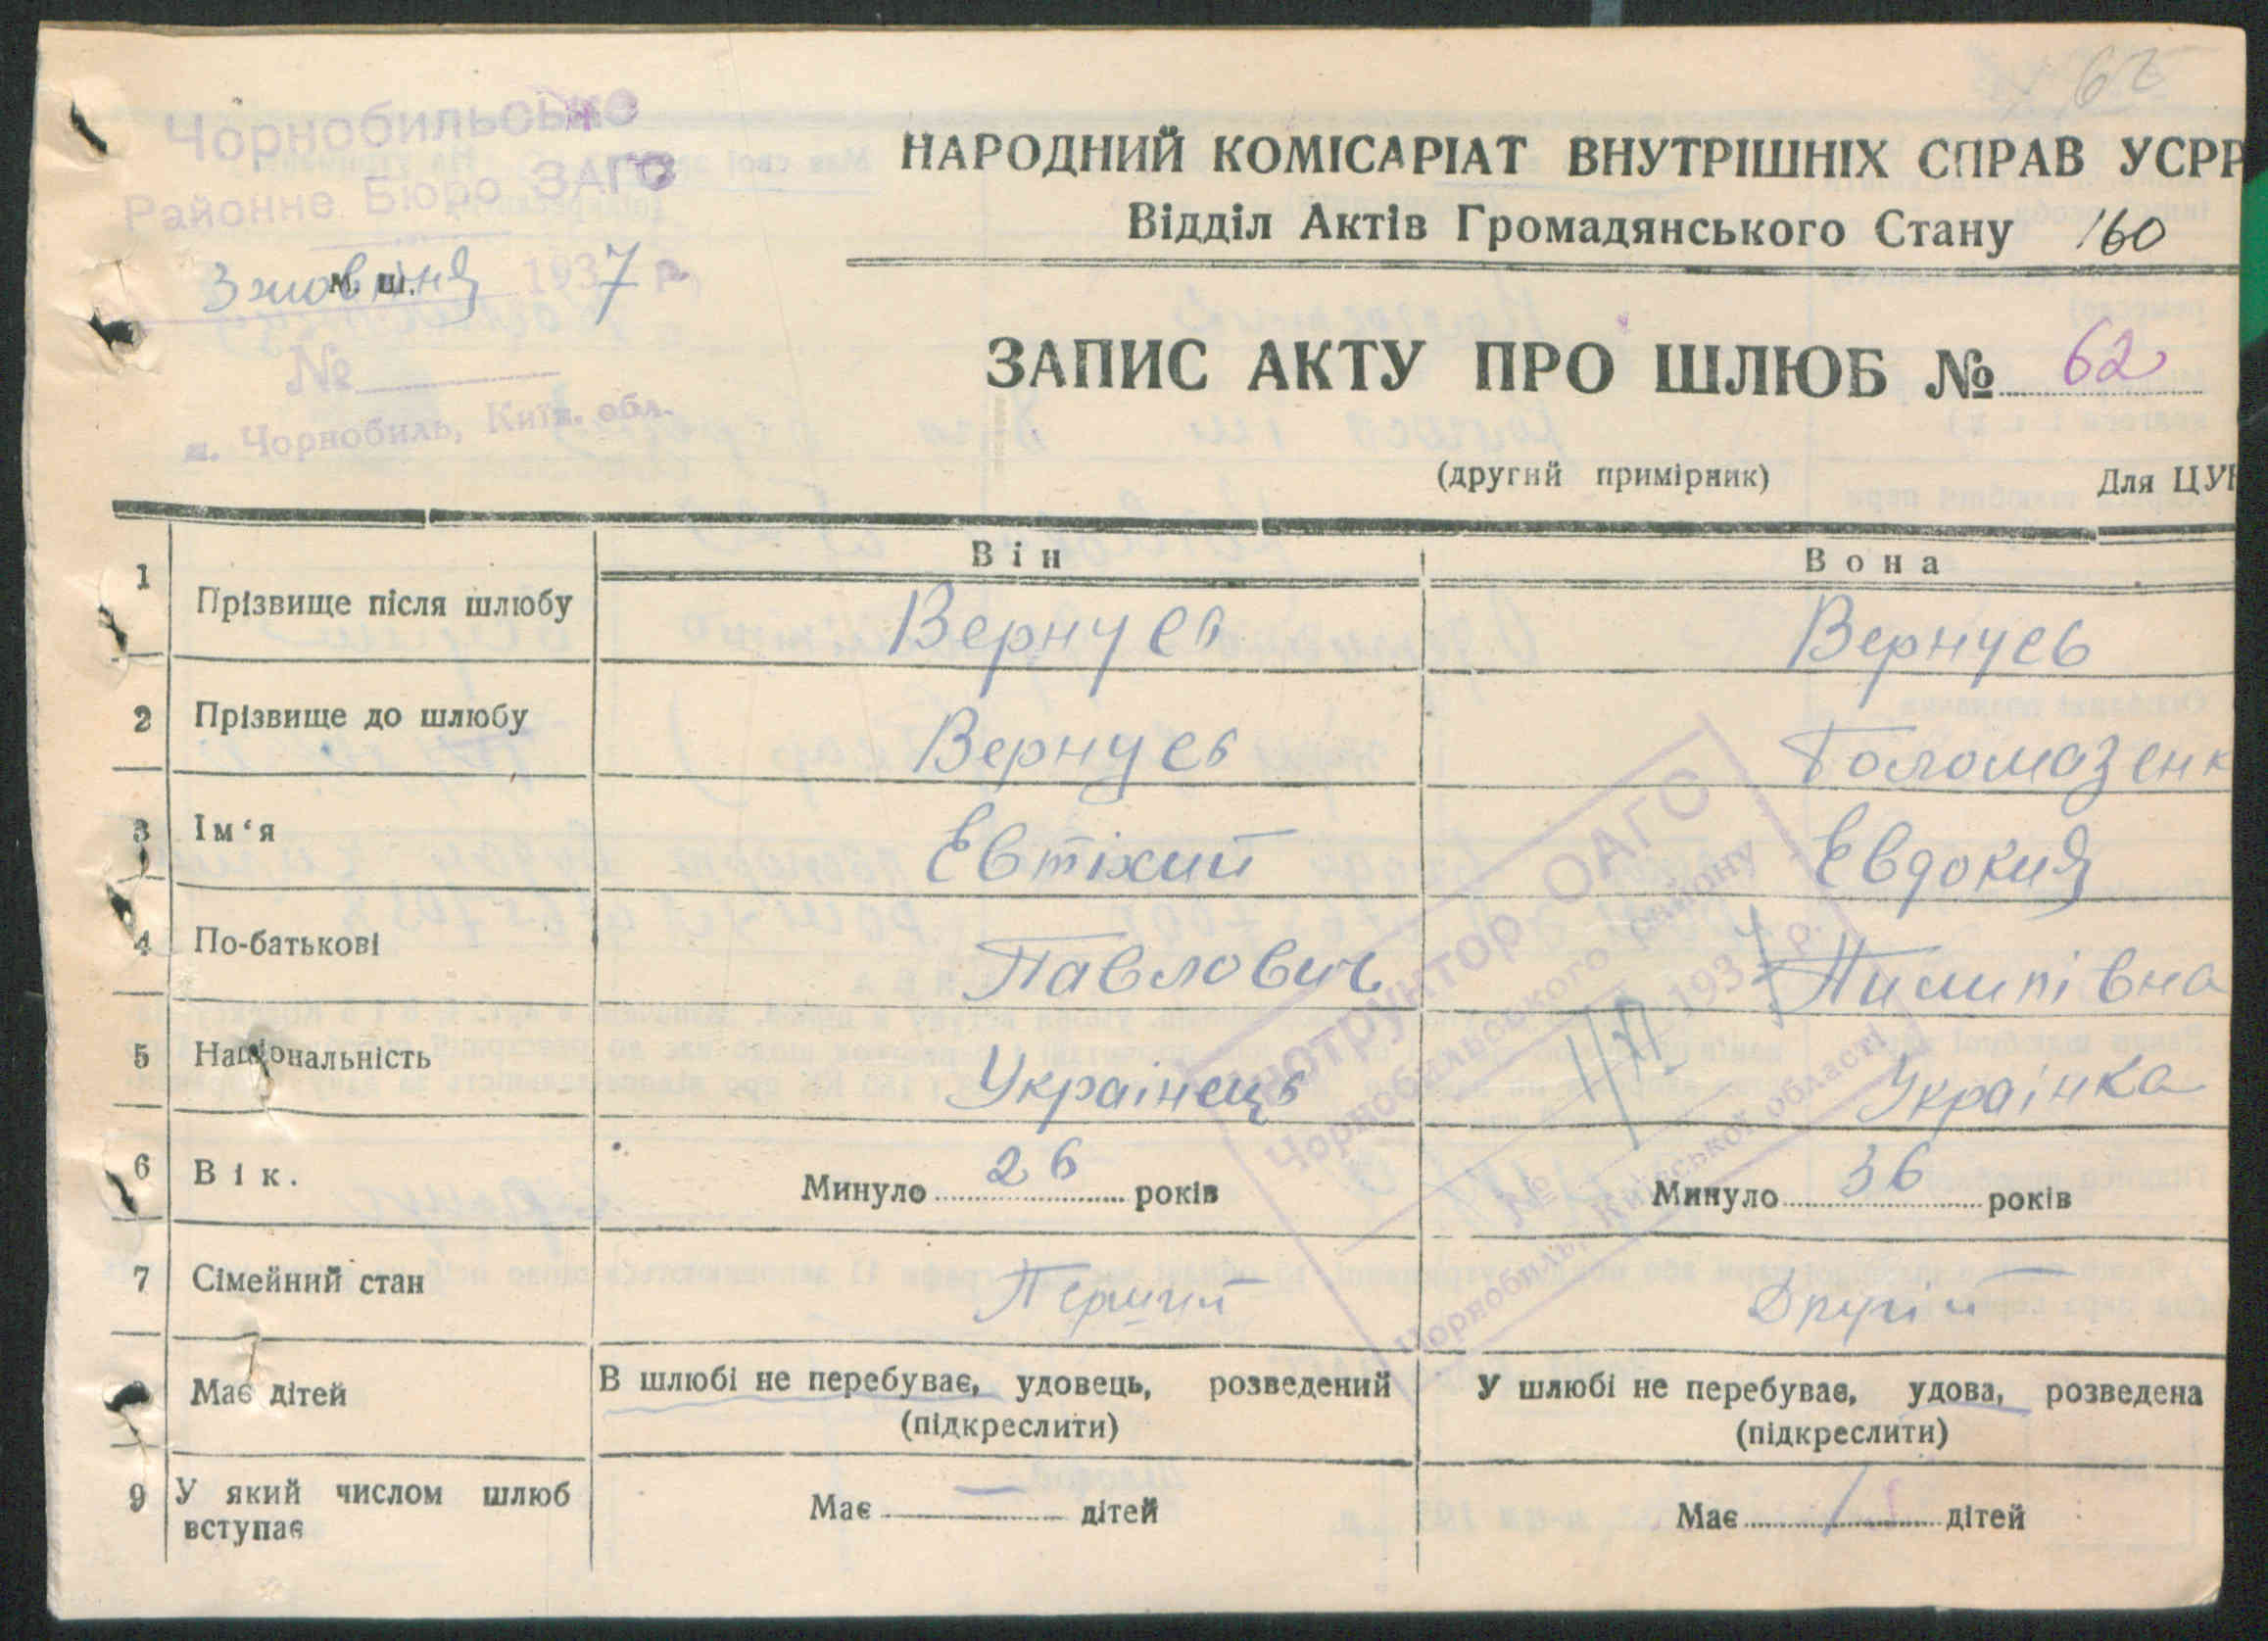 62
Чорнобильське
Районне Бюро ЗАГС
3 жовтня 1937 р.
м. ш.
№
м. Чорнобиль, Київ. обл.
НАРОДНИЙ КОМІСАРІАТ ВНУТРІШНІХ СПРАВ УСРР
Відділ Актів Громадянського Стану 160
ЗАПИС АКТУ ПРО ШЛЮБ № 62
(другий примірник) Для ЦУН
Він Вона
1 Прізвище після шлюбу Вернуєв Вернуєв
2 Прізвище до шлюбу Вернуєв Голомазенк
3 Ім‘я Євтіхий Євдокия
4 По-батькові Павлович Пилипівна
5 Національність Украінець Украінка
6 Вік. Минуло 26 років Минуло 36 років
7 Сімейний стан Перший Другій
8 Має дітей В шлюбі не перебуває, удовець, розведений У шлюбі не перебуває, удова, розведена
(підкреслити) (підкреслити)
9 У який числом шлюб Має — дітей Має 1 дітей
вступає
Інструктор ОАГС
Чорнобильського району
193 р.
№
Чорнобиль, Київської області